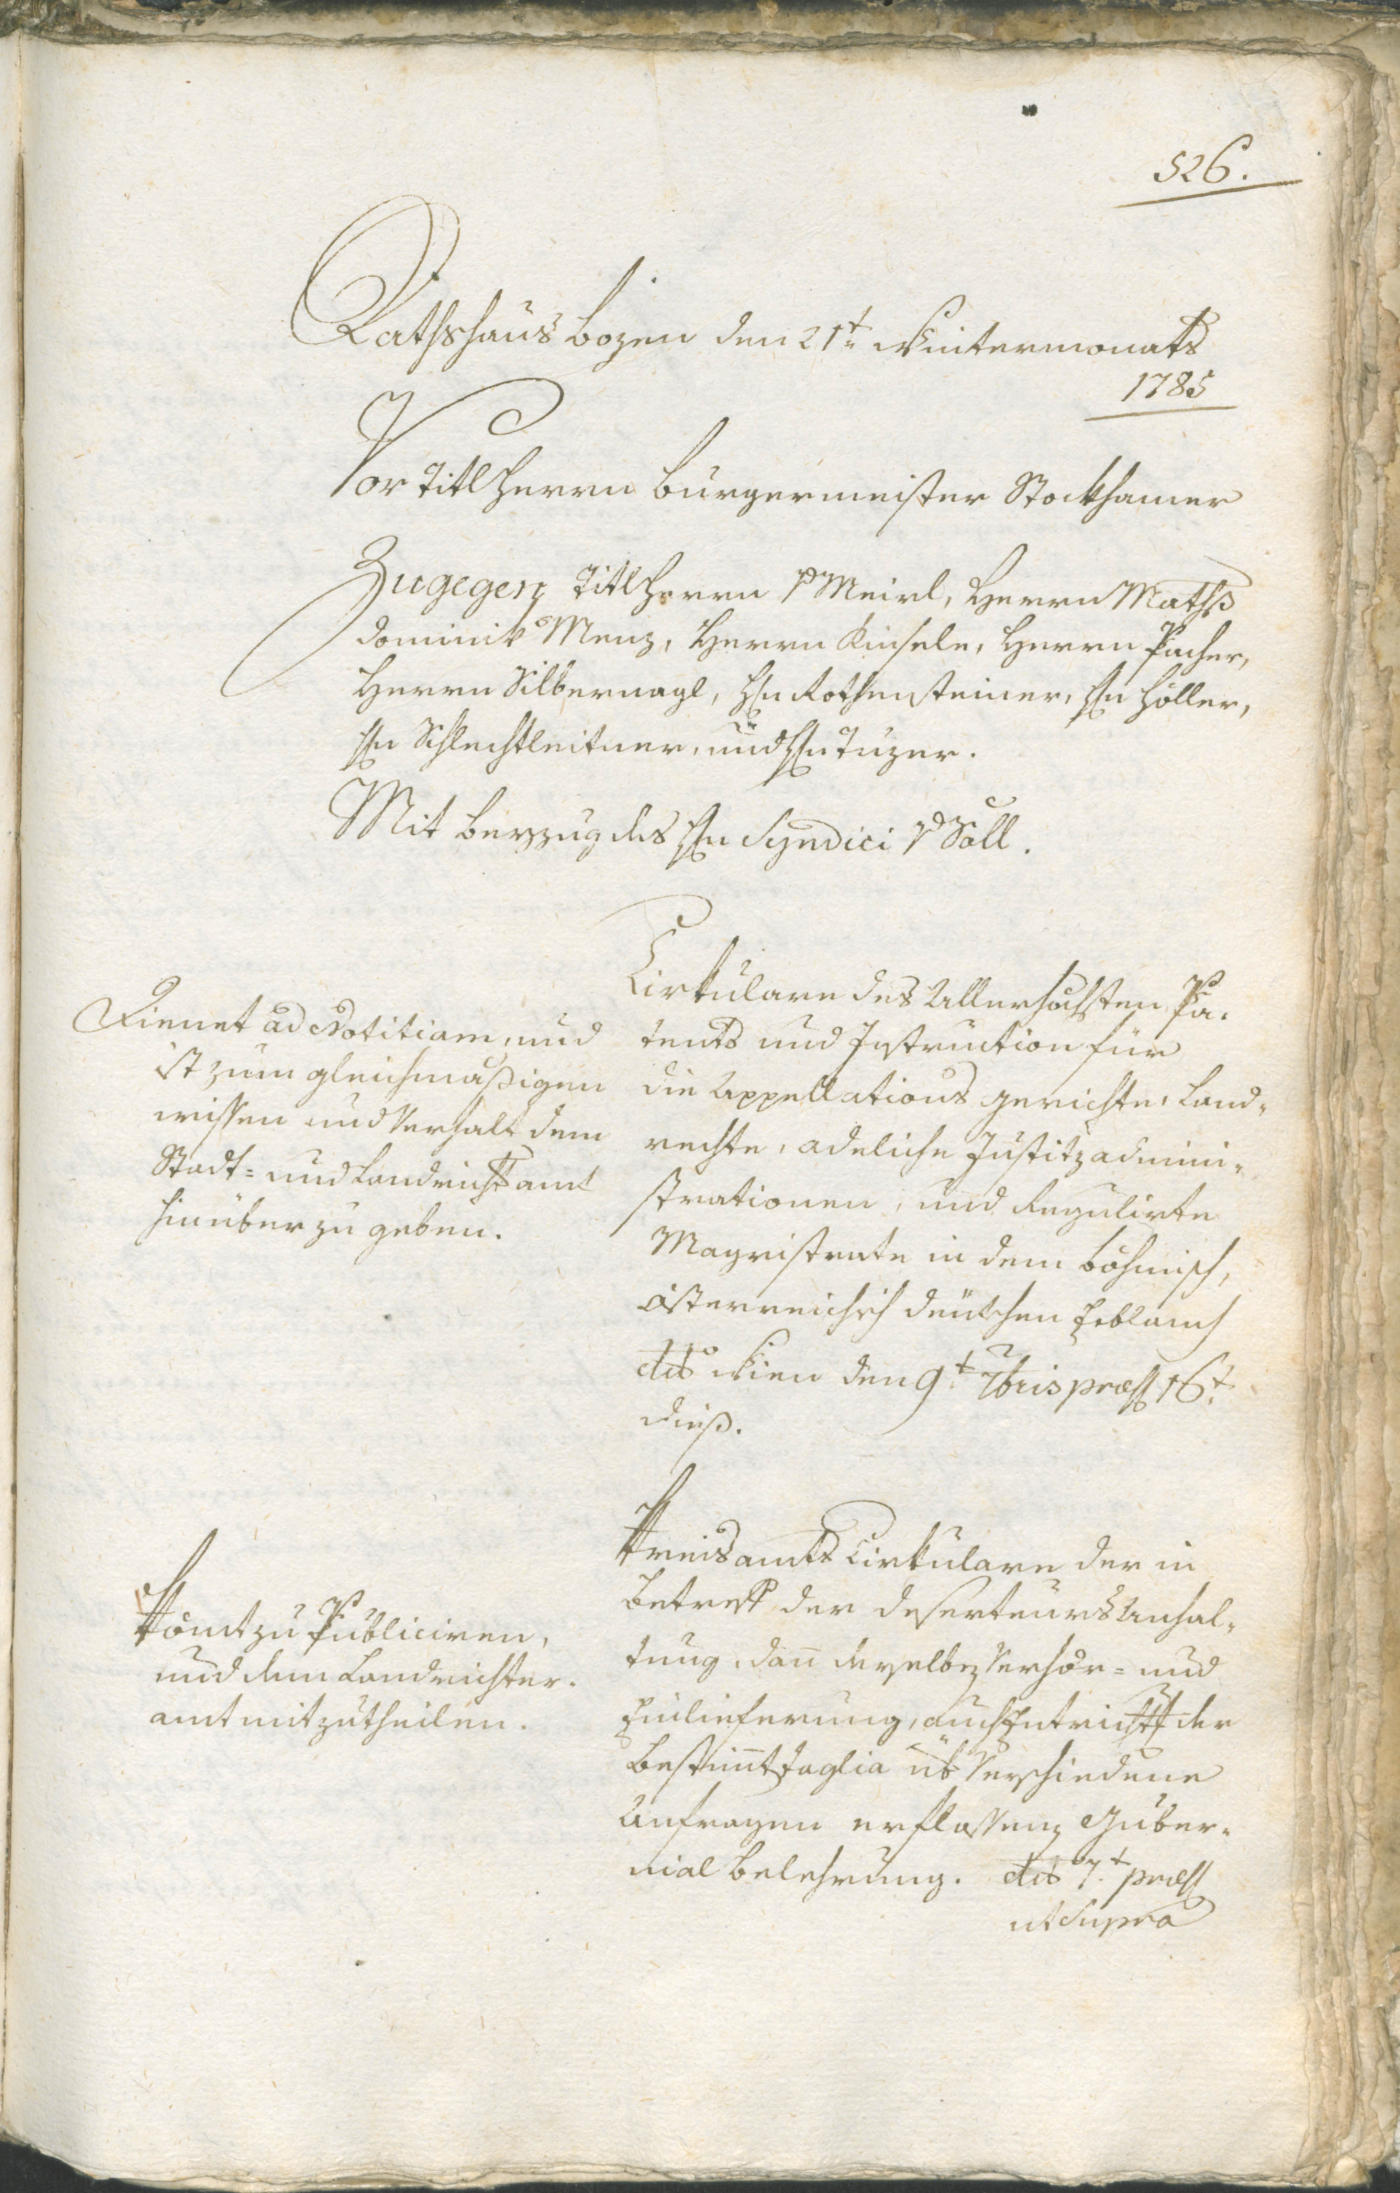 526.
Rathshaus Bozen den 21t Wintermonats
1785
Vor Titl Herrn Burgermeister Stockhamer
Zugegen Titl Herrn v Meirl, Herrn Maths
Dominik Menz, Herrn Kinsele, Herrn Pacher,
Herrn Silbernagl, Hn Rothensteiner, Hn Höller,
Hn Schlechtleitner, und Hn Tuzer.
Mit Beyzug des Hn Syndici v Söll.
Dienet ad Notitiam, und
ist zum gleichmäßigen
wissen und Verhalt dem
Stadt= und Landrichtamt
hinüber zu geben.
Cirkulare des Allerhöchsten Pa-
tents und Instruction für
die Appellations gerichte, Land-
rechte, adeliche Justitzadmini-
strationen, und Regulirte
Magistrate in dem böhmisch,
österreichisch deutschen Erblanden
dto Wien den 9t 7bris præs 16t
dieß.
Kömt zu Publiciren,
und dem Landrichter-
amt mitzutheilen.
Kreisamts Cirkulare der in
Betreff der Deserteurs Anhal-
tung, dañ derselben Verhör= und
Einlieferung, auch Entricht der
Bestimt Taglia üb Verschiedene
Anfragen erflossenen Guber-
nial Belehrung. dto 7t præs
ut supra